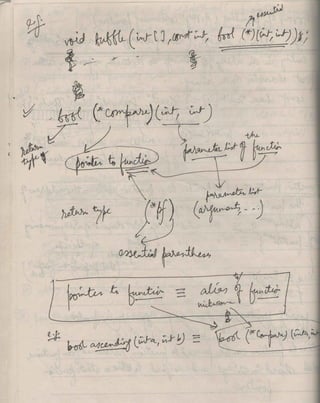 e.g.
essential
void bubble (int [], const int, bool (*)(int, int));
bool (*compare)(int, int)
return type of
the
pointer to function
parameter list of function
parameter list
return type (*pf) (arguments, ...)
essential parenthesis
pointer to function ≡ alias of function
nickname
e.g. bool ascending (int a, int b) ≡ bool (*Compare) (int a, int